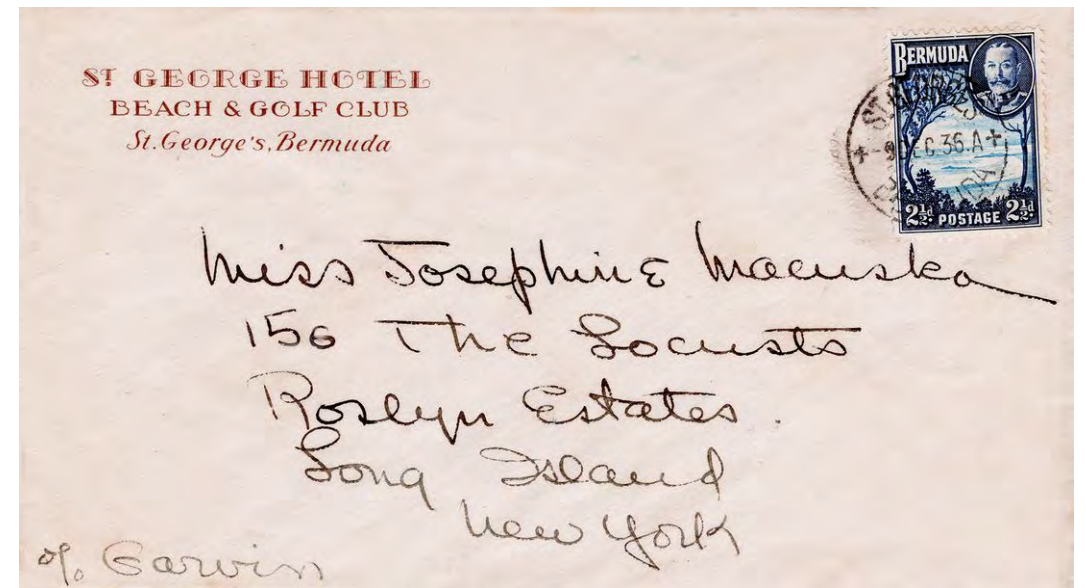 ST GEORGE HOTEL
BEACH & GOLF CLUB
St. George's, Bermuda
BERMUDA
9 DEC 36.A
2½d POSTAGE 2½d
Miss Josephine Macuska
156 The Locusts
Roslyn Estates.
Long Island
New York
c/o Garvin